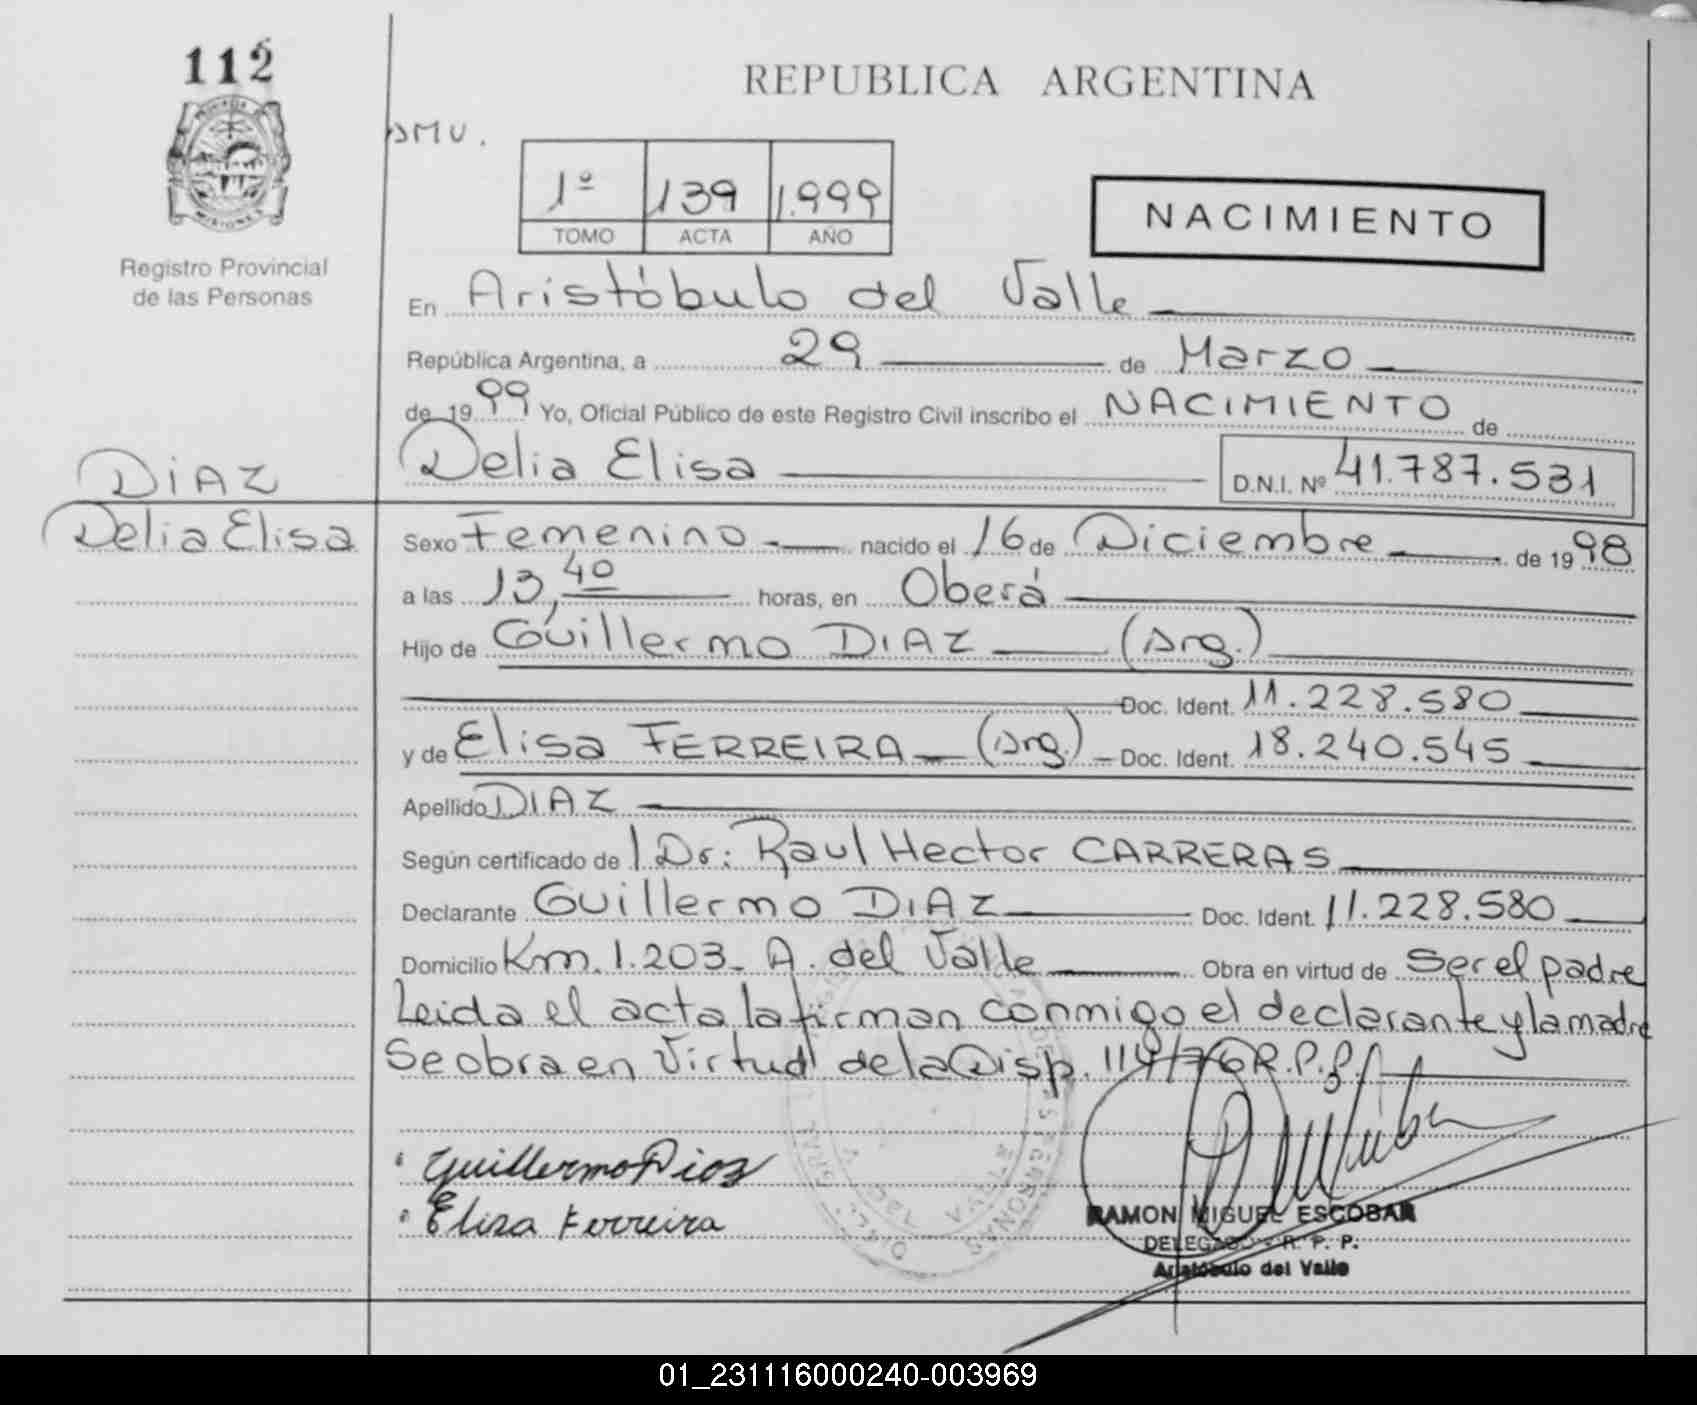 112
REPUBLICA ARGENTINA
DMU.
1º 139 1.999
TOMO ACTA AÑO
NACIMIENTO
MISIONES
Registro Provincial
de las Personas
En Aristóbulo del Valle
República Argentina, a 29 de Marzo
de 1999 Yo, Oficial Público de este Registro Civil inscribo el NACIMIENTO de
DIAZ
Delia Elisa D.N.I. Nº 41.787.531
Delia Elisa
Sexo Femenino nacido el 16 de Diciembre de 1998
a las 13,40 horas, en Oberá
Hijo de Guillermo DIAZ (Arg.)
Doc. Ident. 11.228.580
y de Elisa FERREIRA (Arg.) Doc. Ident. 18.240.545
Apellido DIAZ
Según certificado de l Dr: Raul Hector CARRERAS
Declarante Guillermo DIAZ Doc. Ident. 11.228.580
Domicilio Km. 1.203_ A. del Valle Obra en virtud de Ser el padre
Leida el acta la firman conmigo el declarante y la madre
Se obra en Virtud de la Disp. 114/76 R.P.P.
Guillermo Diaz
Elisa Ferreira
RAMON MIGUEL ESCOBAR
DELEGADO - R. P. P.
Aristóbulo del Valle
01_231116000240-003969